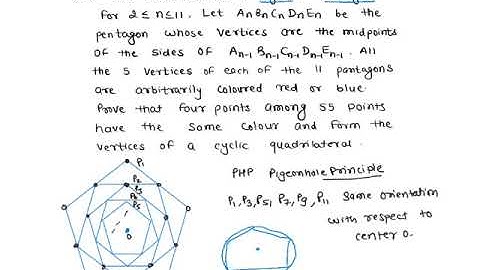 For 2 ≤ n ≤ 11. Let AnBnCnDnEn be the
pentagon whose vertices are the midpoints
of the sides of An-1 Bn-1 Cn-1 Dn-1 En-1. All
the 5 vertices of each of the 11 pantagons
are arbitrarily coloured red or blue.
Prove that four points among 55 points
have the same colour and form the
vertices of a cyclic quadrilateral.
PHP Pigeonhole Principle
P1, P3, P5, P7, P9, P11 same orientation
with respect to
center O.
P1
P2
P3
P4
P5
O